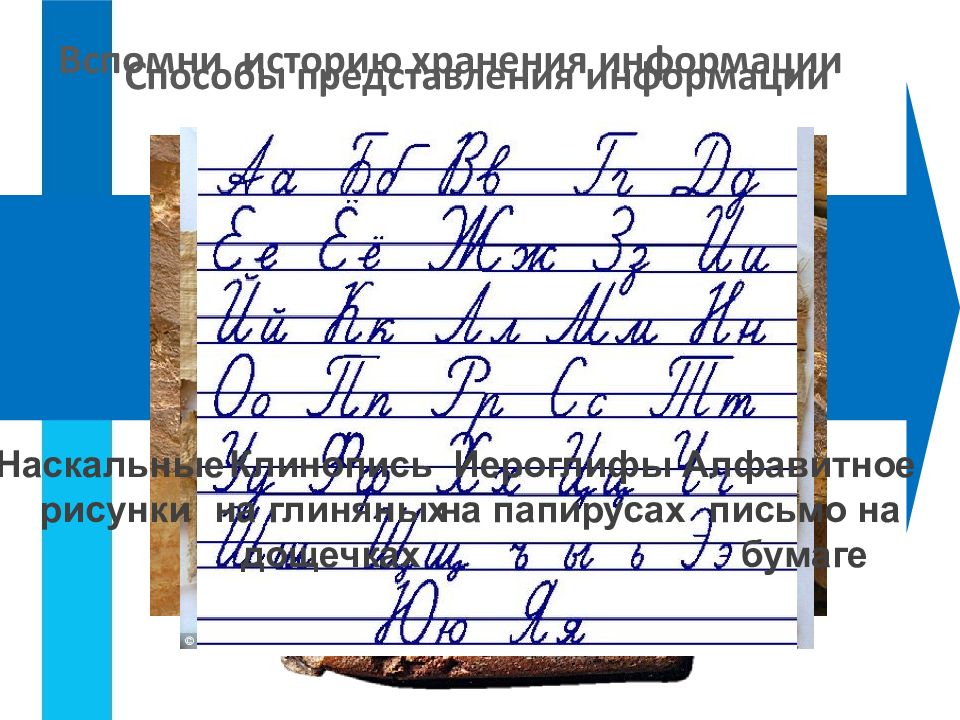 Вспомни историю хранения информации
Способы представления информации
Аа Бб Вв Гг Дд
Ее Ёё Жж Зз Ии
Йй Кк Лл Мм Нн
Оо Пп Рр Сс Тт
Уу Фф Хх Цц Чч
Наскальные Клинопись Иероглифы Алфавитное
рисунки на глиняных на папирусах письмо на
Шш Щщ ъ ы ь Ээ
дощечках бумаге
Юю Яя
©